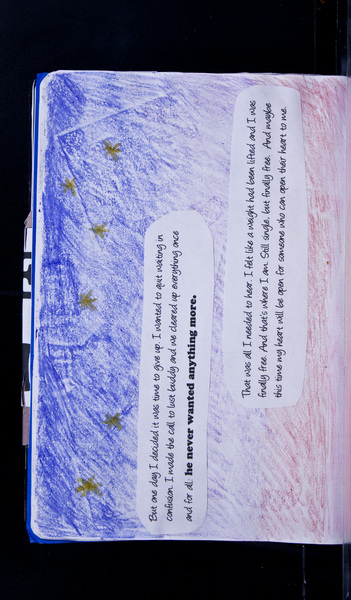 But one day I decided it was time to give up. I wanted to quit waiting in
confusion. I made the call to lust buddy and we cleared up everything once
and for all. he never wanted anything more.
That was all I needed to hear. I felt like a weight had been lifted and I was
finally free. And that's where I am. Still single, but finally free. And maybe
this time my heart will be open for someone who can open their heart to me.